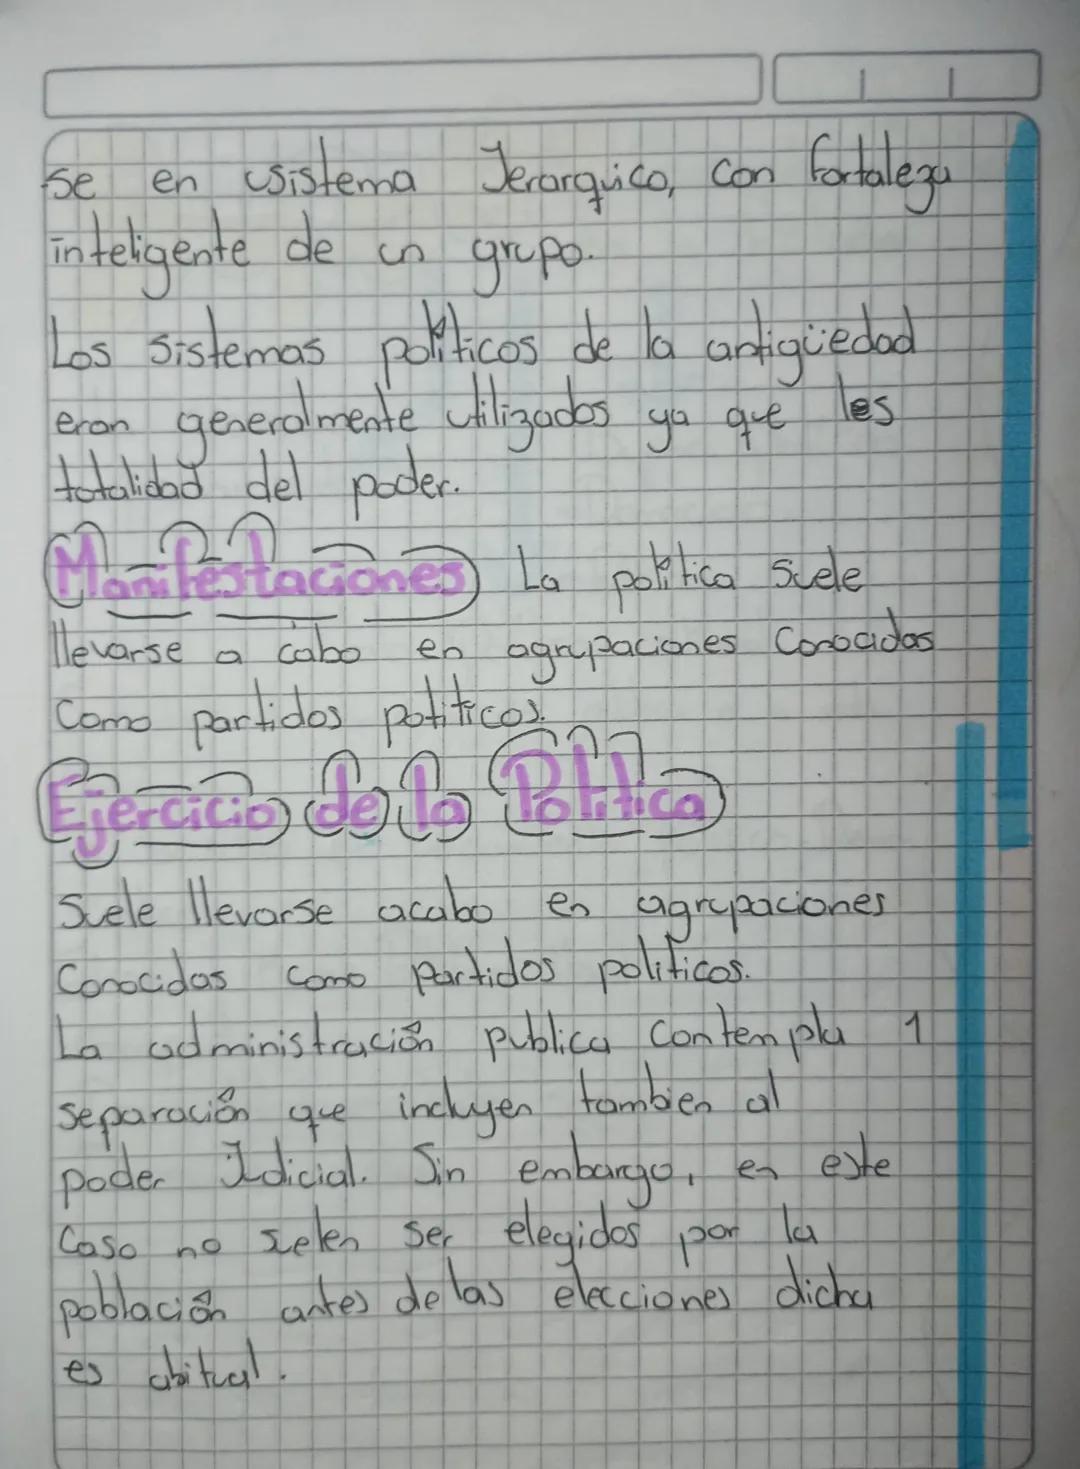 se en usistema Jerarquico, con fortaleza
inteligente de un grupo.
Los sistemas políticos de la antigüedad
eran generalmente utilizados ya que les
totalidad del poder.
Manifestaciones La política suele
llevarse a cabo en agrupaciones Conocidas
Como partidos políticos.
Ejercicio de la Política
Suele llevarse acabo en agrupaciones
Conocidas como partidos políticos.
La administración publica contempla 1
separación que incluyen tambien al
poder Judicial. Sin embargo, en este
Caso no suelen ser elegidos por la
población antes de las elecciones dicha
es abitual.